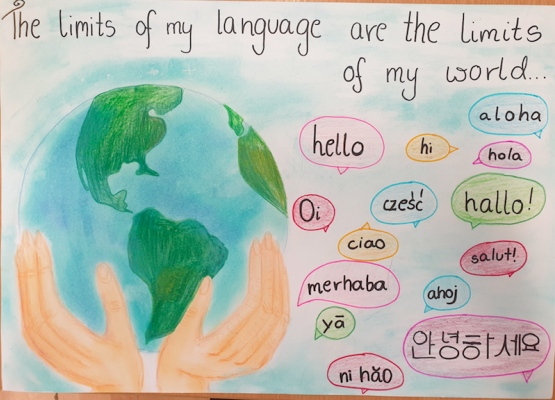 The limits of my language are the limits
of my world...
aloha
hello
hi
hola
Oi
cześć
hallo!
ciao
salut!
merhaba
ahoj
yā
안녕하세요
ni hǎo